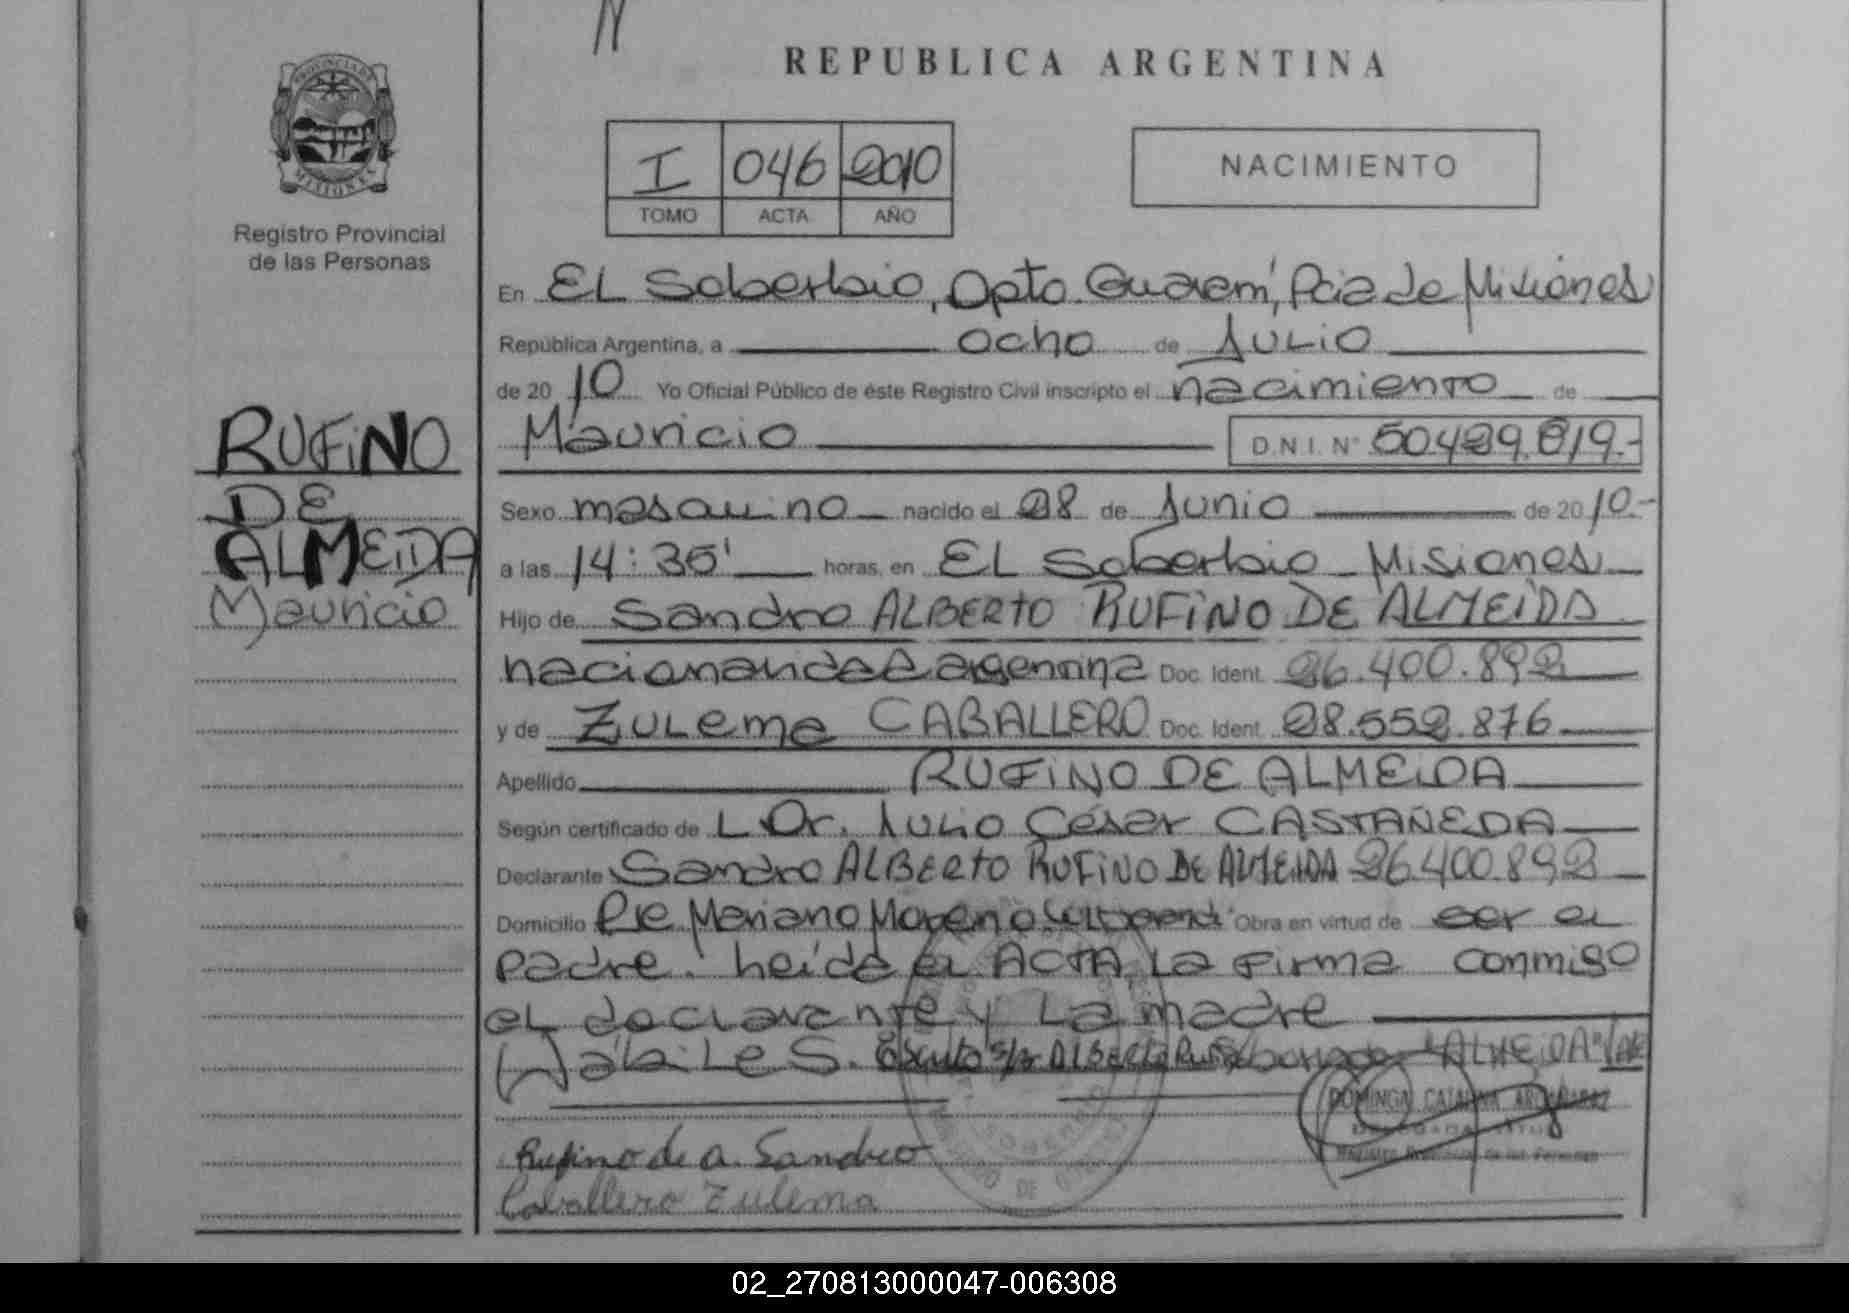 REPUBLICA ARGENTINA
PROVINCIA DE MISIONES
Registro Provincial
de las Personas
I 046 2010
TOMO ACTA AÑO
NACIMIENTO
En EL Soberbio, Dpto. Guaraní, Pcia de Misiones
República Argentina, a ocho de Julio
de 2010 Yo Oficial Público de éste Registro Civil inscripto el nacimiento de
Mauricio D.N.I. Nº 50.429.819.-
RUFINO
DE
ALMEIDA
Mauricio
Sexo masculino nacido el 28 de Junio de 2010.-
a las 14:35' horas, en EL Soberbio Misiones
Hijo de Sandro ALBERTO RUFINO DE ALMEIDA
nacionalidad argentina Doc. Ident. 26.400.892
y de Zulema CABALLERO Doc. Ident. 28.552.876
Apellido RUFINO DE ALMEIDA
Según certificado de L Dr. Julio César CASTAÑEDA
Declarante Sandro ALBERTO RUFINO DE ALMEIDA 26.400.892
Domicilio Pje Mariano Moreno Obra en virtud de ser el
padre. Leída el ACTA La firma conmigo
el declarante y La madre
ALBERTO ALMEIDA" VALE
DOMINGA CATALINA
Registro Provincial de las Personas
Rufino de a. Sandro
Caballero Zulema
02_270813000047-006308